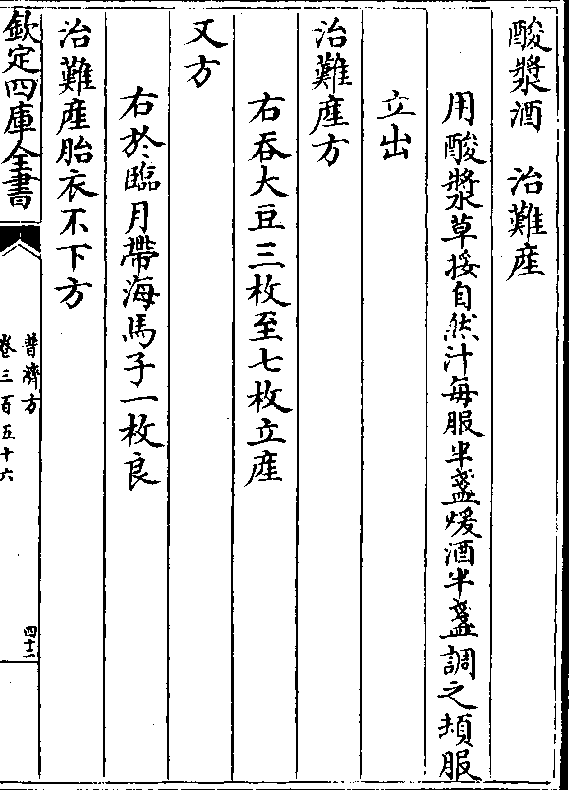 酸漿酒　治難產
用酸漿草挼自然汁每服半盞煖酒半盞調之頓服
立出
治難產方
右吞大豆三枚至七枚立產
又方
右於臨月帶海馬子一枚良
治難產胎衣不下方
欽定四庫全書
普濟方
卷三百五十六
四十二